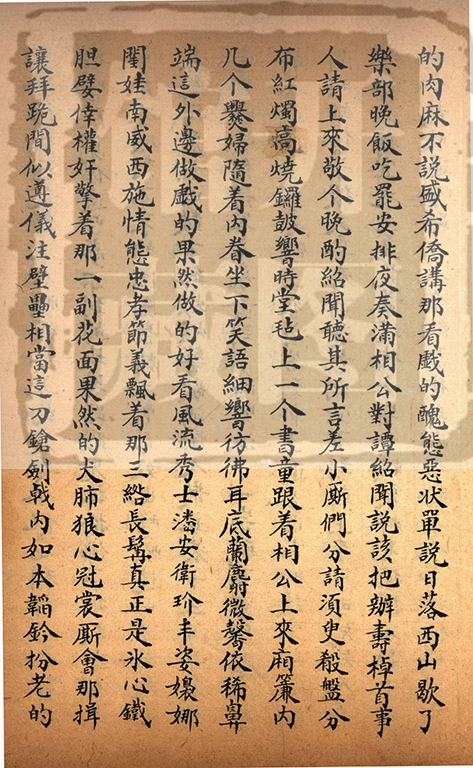 的肉麻不説盛希僑講那看戲的醜態惡状單説日落西山歇了
樂部晚飯吃罷安排夜奏滿相公對譚紹聞説該把辦壽棹首事
人請上來敬个晚酌紹聞聽其所言差小厮們分請須臾殽盤分
布紅燭高燒鑼皷響時堂毡上一个書童跟着相公上來廂簾内
几个爨婦隨着内眷坐下笑語細響彷彿耳底蘭麝微馨依稀鼻
端這外邊做戲的果然做的好看風流秀士潘安衛玠丰姿嬝娜
閨娃南威西施情態忠孝節義飄着那三綹長髯真正是氷心鐵
胆嬖倖權奸擎着那一副花面果然的犬肺狼心冠裳厮會那揖
讓拜跪間似遵儀注壁壘相當這刀鎗劍戟内如本韜鈐扮老的